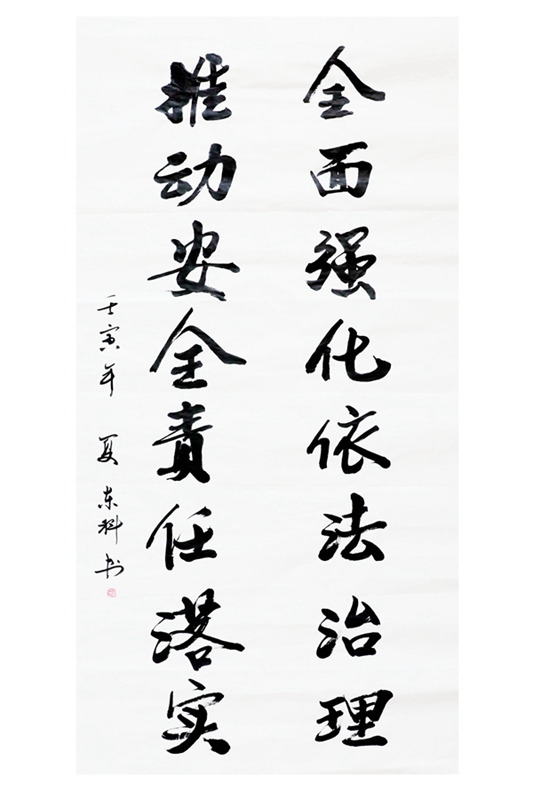 全面强化依法治理
推动安全责任落实
壬寅年 夏 东科书